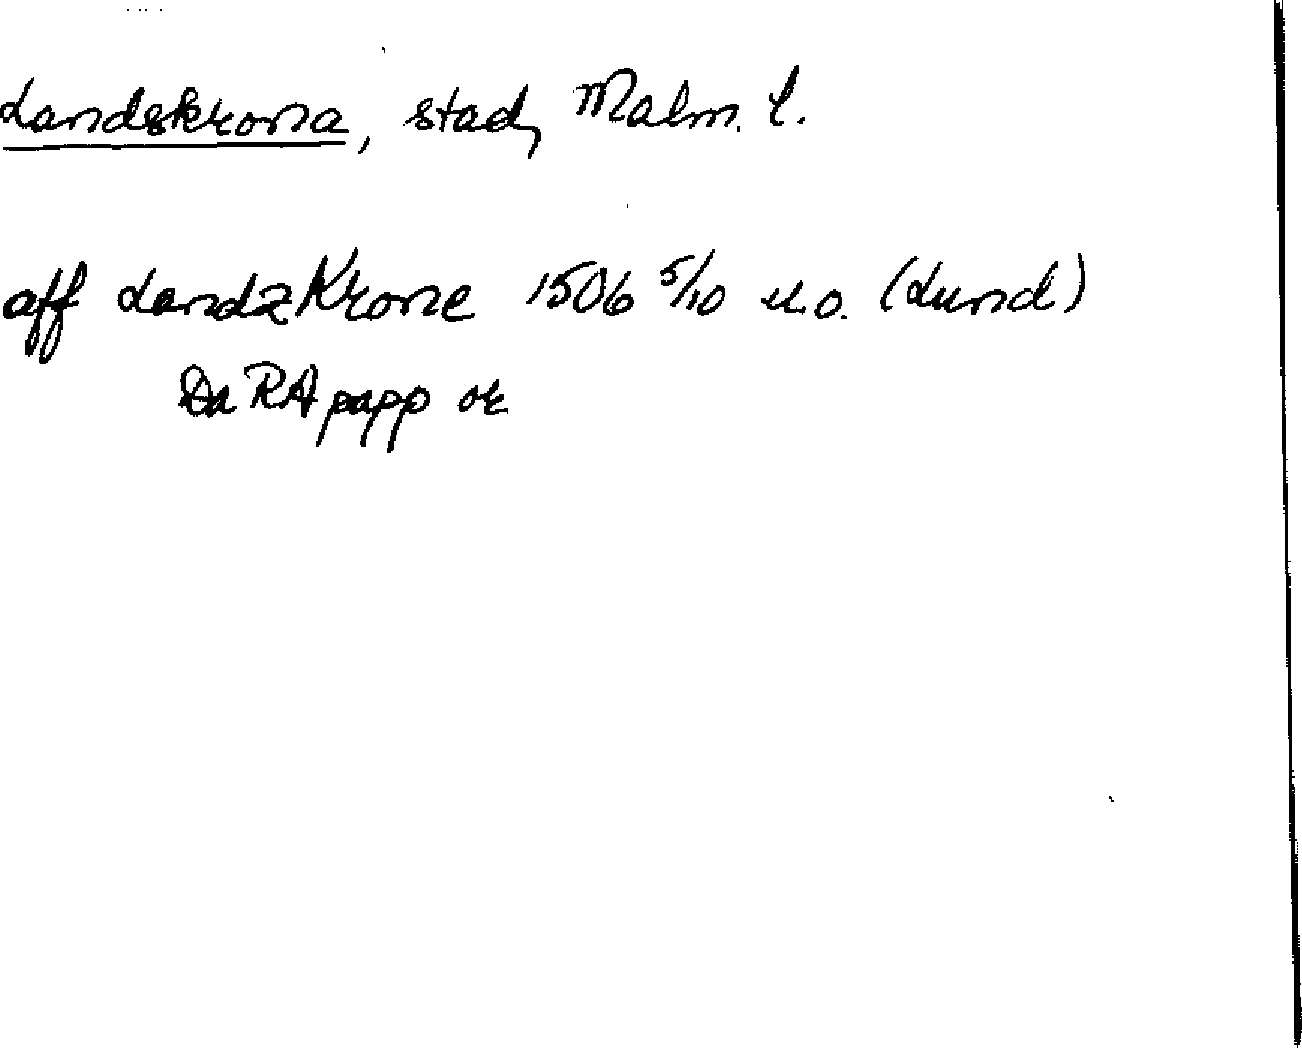 Landskrona, stad, Malm. l.
aff LandzKrone 1506 5/10 u.o. (Lund)
Da RA papp or